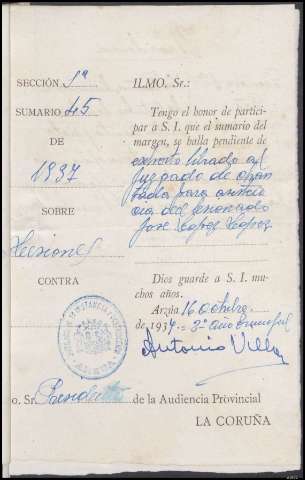 SECCIÓN 1ª
SUMARIO 45
DE
1937
SOBRE
Lesiones
CONTRA
ILMO. Sr.:
Tengo el honor de partici-
par a S. I. que el sumario del
margen, se halla pendiente de
exhorto librado al
juzgado de
para
del lesionado
José Lopez Lopez
Dios guarde a S. I. mu-
chos años.
Arzúa 16 Octubre
de 1937.= 2º año triunfal
Antonio Villar
o. Sr. Presidente de la Audiencia Provincial
LA CORUÑA